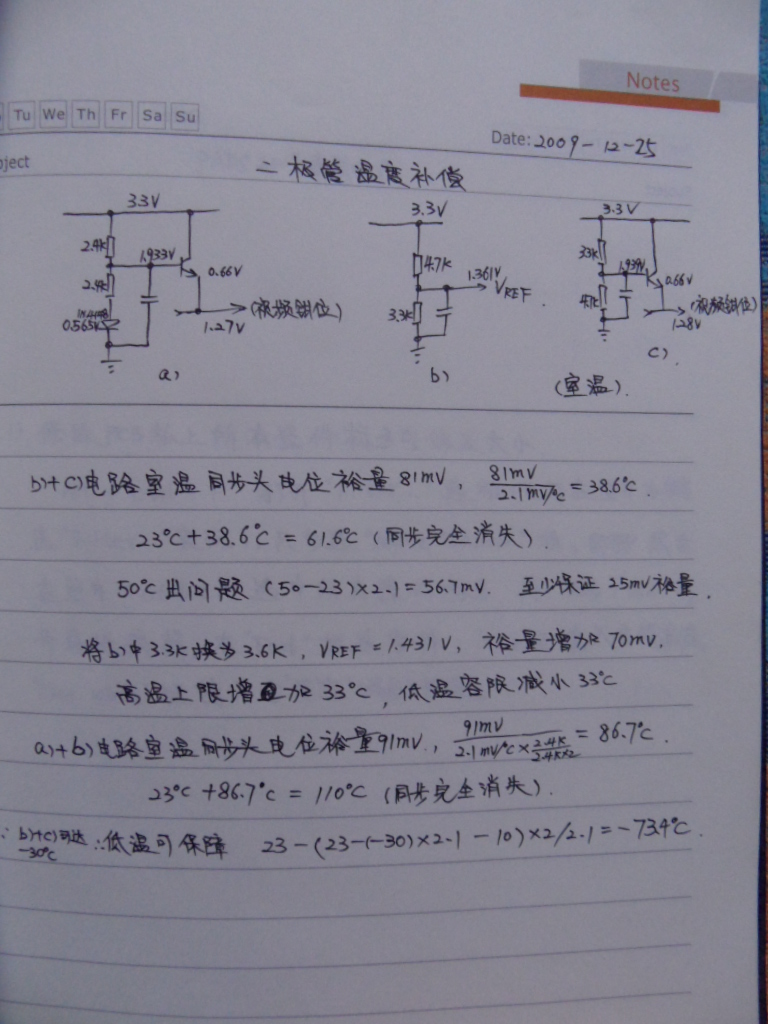 Notes
Tu We Th Fr Sa Su
Date: 2009-12-25
oject
二极管温度补偿
3.3V
2.4K
1.933V
0.66V
2.4K
1N4148
0.565V
1.27V
(视频钳位)
a)
3.3V
4.7K
1.361V
VREF
3.3K
b)
3.3V
33K
1.939V
0.66V
47K
(视频钳位)
1.28V
c)
(室温).
b)+c)电路室温同步头电位裕量81mV, 81mV/2.1mV/℃ = 38.6℃.
23℃+38.6℃ = 61.6℃ (同步完全消失).
50℃出问题 (50-23)×2.1=56.7mV. 至少保证25mV裕量.
将b)中3.3K换为3.6K, VREF=1.431V, 裕量增加70mV.
高温上限增加33℃, 低温容限减小33℃
a)+b)电路室温同步头电位裕量91mV, 91mV/2.1mV/℃×2.4K/2.4K×2 = 86.7℃.
23℃+86.7℃ = 110℃ (同步完全消失).
∵ b)+c)可达-30℃ ∴低温可保障 23-(23-(-30)×2.1-10)×2/2.1=-73.4℃.